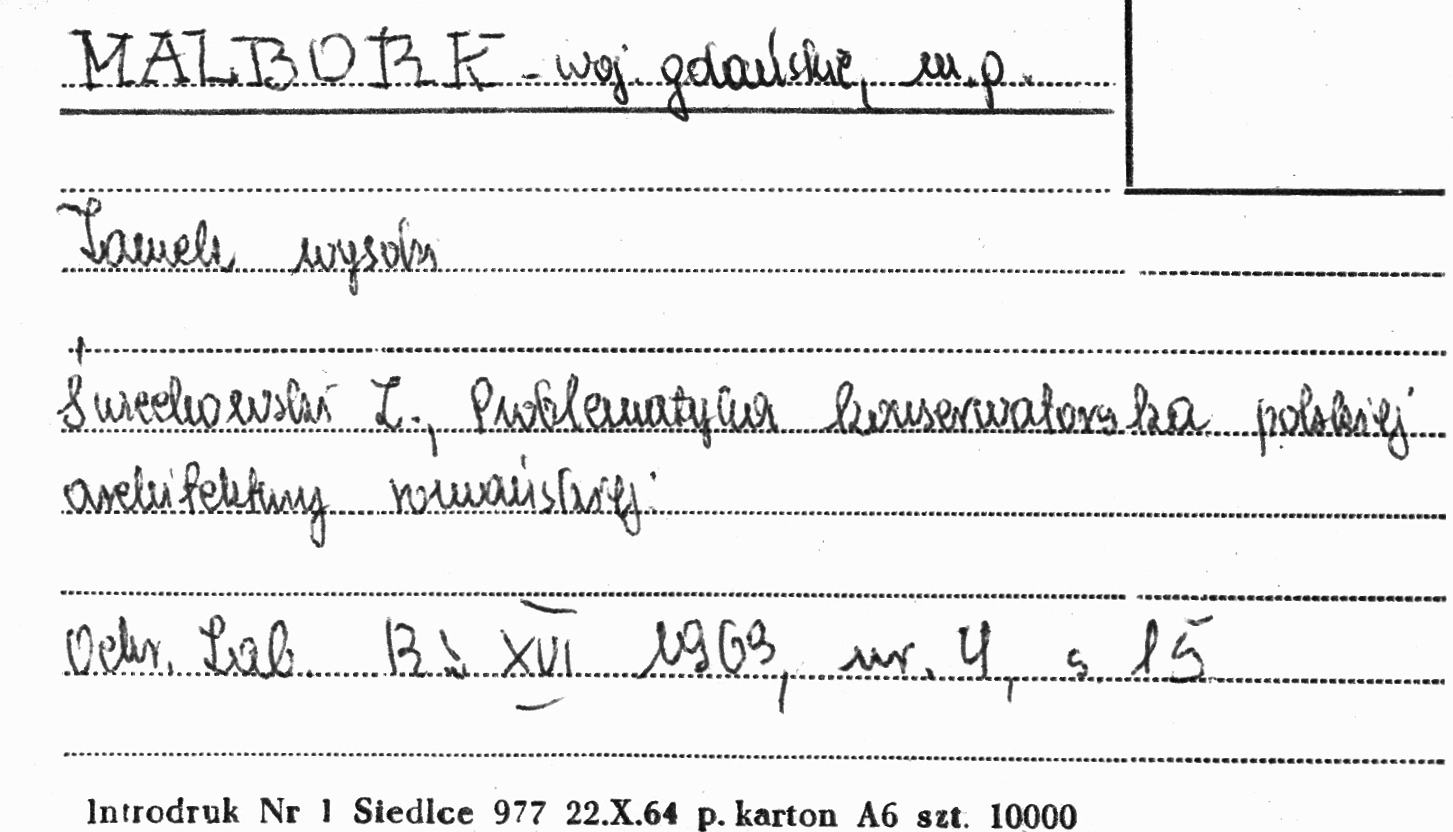 MALBORK - woj. gdańskie, m.p.
Zamek wysoki
Świechowski Z., Problematyka konserwatorska polskiej
architektury romańskiej
Ochr. Zab. R. XVI 1963, nr. 4, s 15
Introdruk Nr 1 Siedlce 977 22.X.64 p. karton A6 szt. 10000